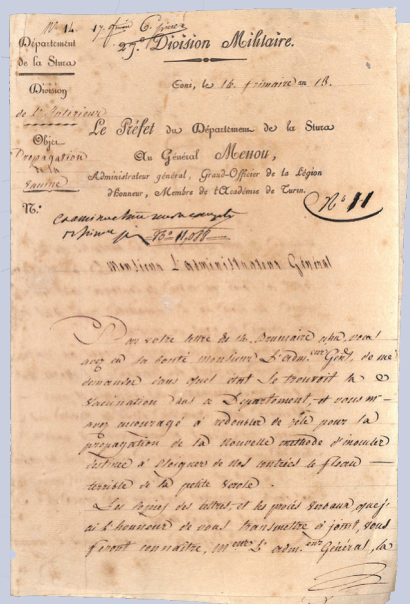 N.º 14. 17. 6. frim.re
27.e Division Militaire.
Département
de la Stura
Division
de l'Intérieur
Objet
Propagation
de la
Vaccine
N.º
Coni, le 16. frimaire an 13.
Le Préfet du Département de la Stura
Au Général Menou,
Administrateur général, Grand-Officier de la Légion
d'Honneur, Membre de l'Académie de Turin.
N.º 11
B.º 11,088
Monsieur L'administrateur Général
Par votre lettre du 12. Brumaire vous
avez eu la bonté monsieur L'adm.eur Gén.l de me
demander dans quel état se trouvoit la
vaccination dans ce Département, et vous m'
avez encouragé à redoubler de zèle pour la
propagation de la nouvelle méthode d'inoculer
destinée à éloigner de nos contrées le fléau
terrible de la petite vérole.
Les copies des lettres, et les procès verbaux que j'
ai l'honneur de vous transmettre ci joint, vous
feront connaître, M.eur L'adm.eur Général, la